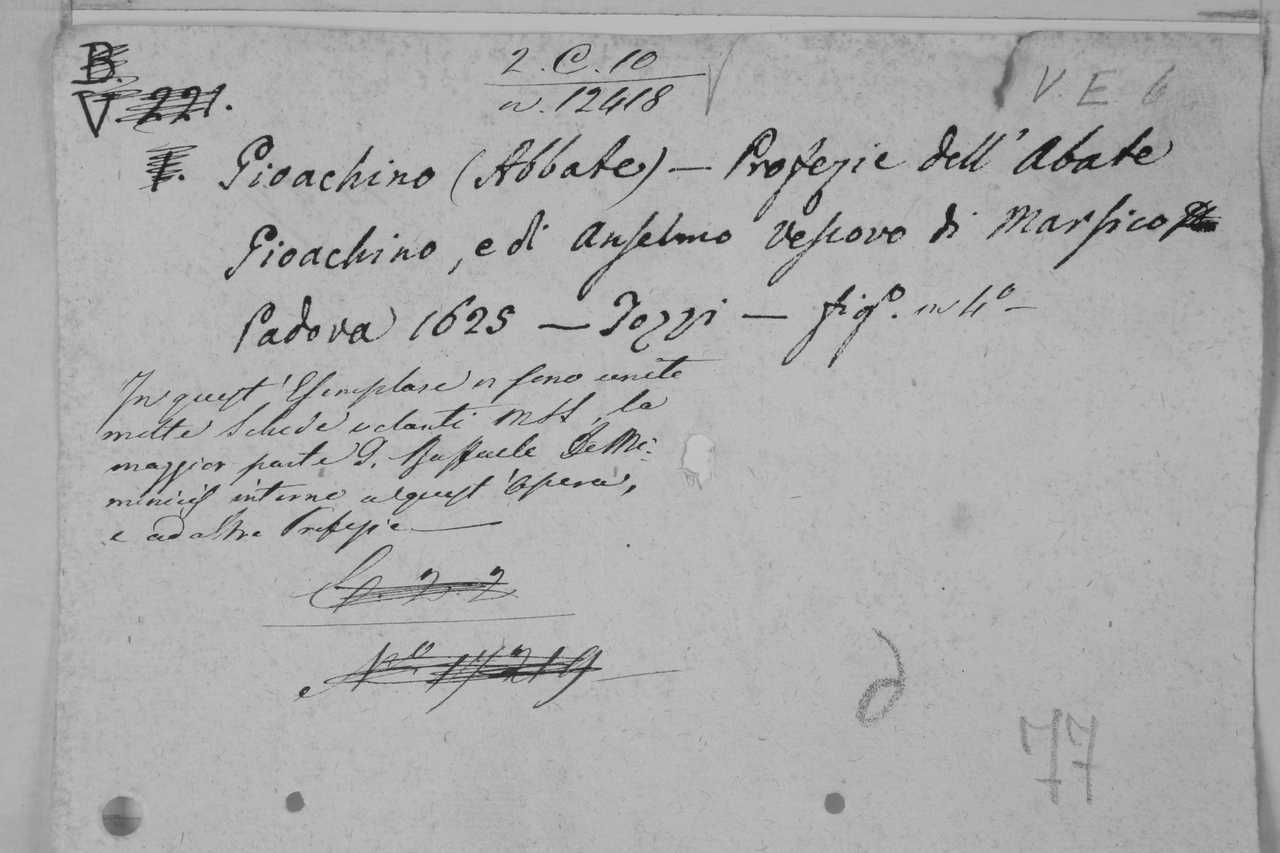 B.
V. 221.
2. C. 10
n. 12418
V. E 6
I. Gioachino (Abbate) — Profezie dell' Abate
Gioachino, e di Anselmo Vescovo di Marsico
Padova 1625 — Tozzi — fig.º in 4º —
In quest' Esemplare vi sono unite
molte Schede volanti MSS, la
maggior parte d. Raffaele De Mi-
minicis intorno a quest' Opera,
e ad altre Profezie —
G. 2. 2
Nº 17219
6
77